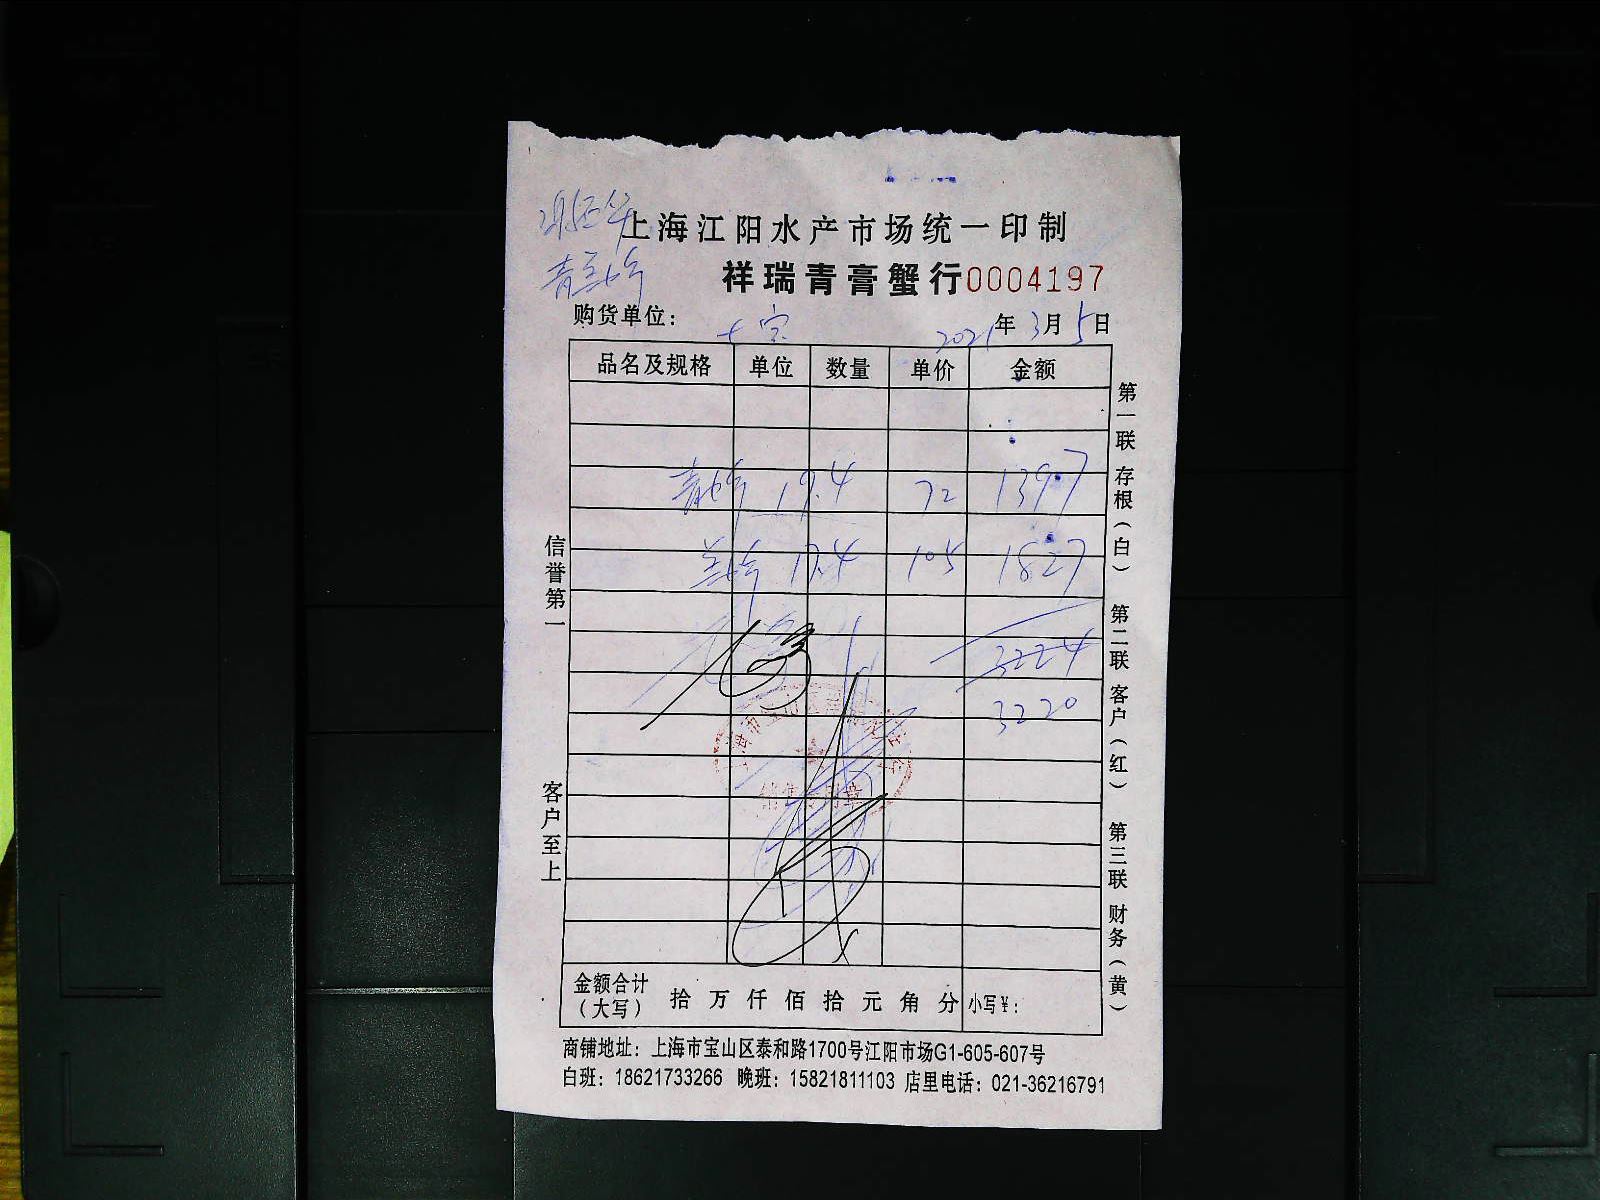 上海江阳水产市场统一印制
祥瑞青膏蟹行0004197
购货单位： 2021年3月5日
品名及规格 单位 数量 单价 金额
19.4 72 1397
17.4 105 1827
3224
3220
金额合计（大写） 拾万仟佰拾元角分 小写¥：
商铺地址：上海市宝山区泰和路1700号江阳市场G1-605-607号
白班：18621733266 晚班：15821811103 店里电话：021-36216791
信誉第一
客户至上
第一联 存根（白） 第二联 客户（红） 第三联 财务（黄）